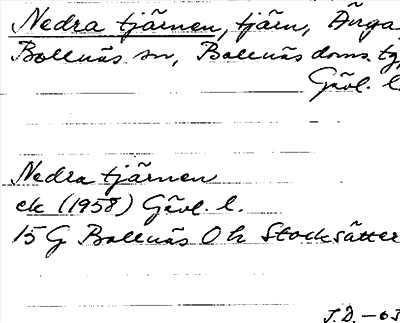 Nedra tjärnen, tjärn, Änga
Bollnäs sn, Bollnäs doms. tg,
Gävl. l
Nedra tjärnen
ek (1958) Gävl. l.
15 G Bollnäs O h Stocksätter
J.D. –63